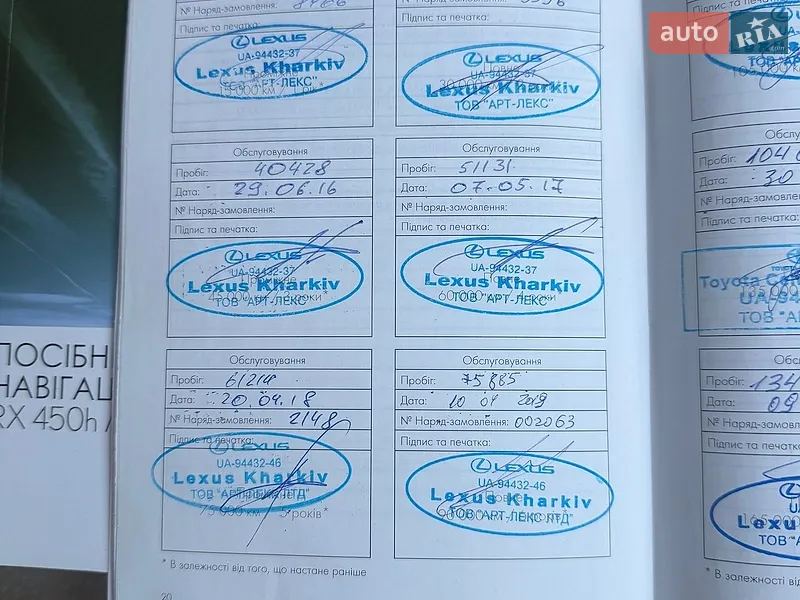 № Наряд-замовлення:
Підпис та печатка:
LEXUS
UA-94432-37
Lexus Kharkiv
ТОВ "АРТ-ЛЕКС"
15 000 км / 1 рік*
№ Наряд-замовлення:
Підпис та печатка:
LEXUS
UA-94432-37
Lexus Kharkiv
ТОВ "АРТ-ЛЕКС"
Обслуговування
Пробіг: 40428
Дата: 29.06.16
№ Наряд-замовлення:
Підпис та печатка:
LEXUS
UA-94432-37
Lexus Kharkiv
ТОВ "АРТ-ЛЕКС"
45 000 км / 3 роки*
Обслуговування
Пробіг: 51131
Дата: 07.05.17
№ Наряд-замовлення:
Підпис та печатка:
LEXUS
UA-94432-37
Lexus Kharkiv
ТОВ "АРТ-ЛЕКС"
60 000 км / роки
Обслуговування
Пробіг: 61214
Дата: 20.04.18
№ Наряд-замовлення: 2148
Підпис та печатка:
LEXUS
UA-94432-46
Lexus Kharkiv
ТОВ "АРТ-ЛЕКС ЛТД"
75 000 км 5 років*
Обслуговування
Пробіг: 75885
Дата: 10 04 2019
№ Наряд-замовлення: 002063
Підпис та печатка:
LEXUS
UA-94432-46
Lexus Kharkiv
ТОВ "АРТ-ЛЕКС ЛТД"
90 000 км
* В залежності від того, що настане раніше
20
Обслу
Пробіг: 104
Дата: 30
№ Наряд-замовл
Підпис та печатк
Toyota C
UA-94
ТОВ "АР
Обсл
Пробіг: 134
Дата: 09
№ Наряд-замовл
Підпис та печатк
UA
Lexu
165 000
ТОВ "А
* В залежності ві
ПОСІБН
НАВІГАЦ
RX 450h /
auto RIA .com